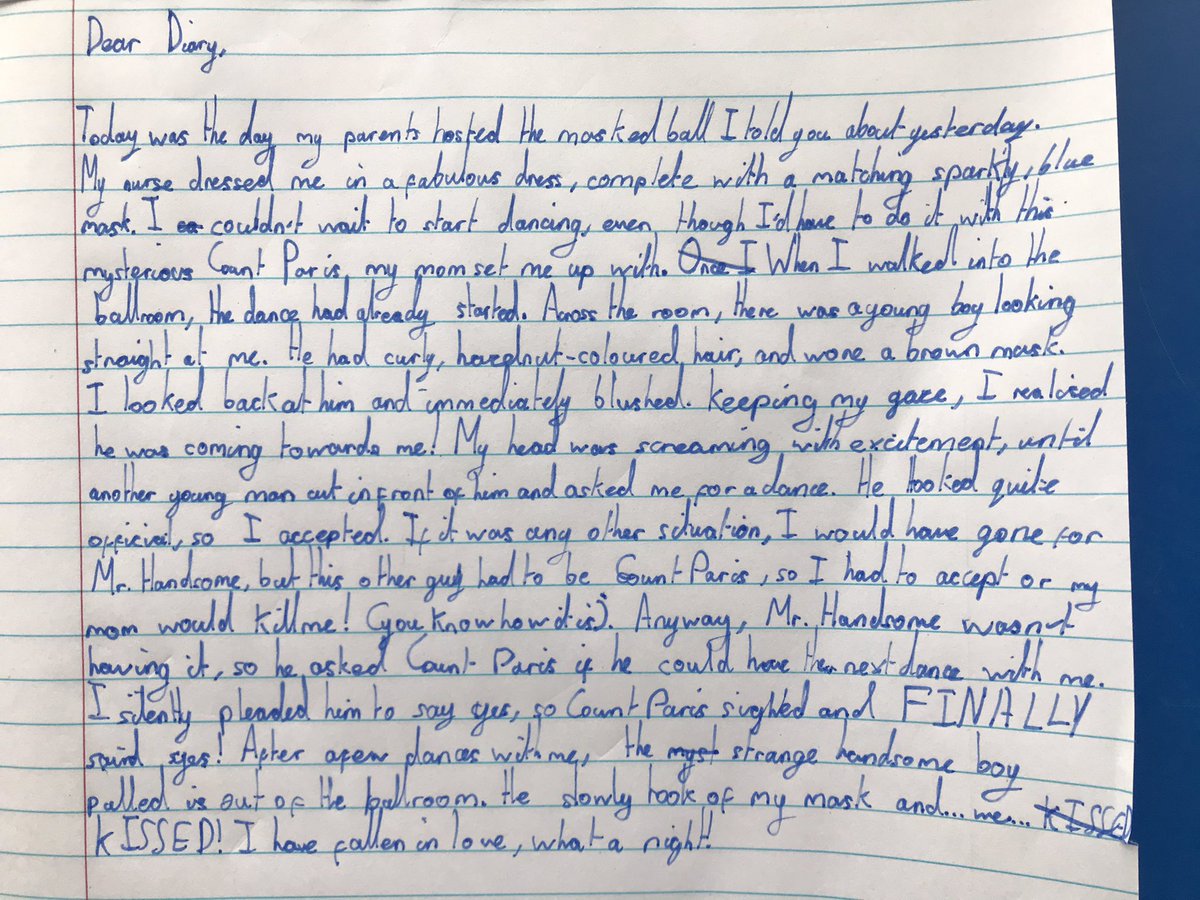 Dear Diary,
Today was the day my parents hosted the masked ball I told you about yesterday.
My nurse dressed me in a fabulous dress, complete with a matching sparkly, blue
mask. I couldn't wait to start dancing, even though I'd have to do it with this
mysterious Count Paris, my mom set me up with. Once I When I walked into the
ballroom, the dance had already started. Across the room, there was a young boy looking
straight at me. He had curly, hazelnut-coloured hair, and wore a brown mask.
I looked back at him and immediately blushed. Keeping my gaze, I realized
he was coming towards me! My head was screaming with excitement, until
another young man cut in front of him and asked me for a dance. He looked quite
official, so I accepted. If it was any other situation, I would have gone for
Mr. Handsome, but this other guy had to be Count Paris, so I had to accept or my
mom would kill me! (you know how it is). Anyway, Mr. Handsome wasn't
having it, so he asked Count Paris if he could have the next dance with me.
I silently pleaded him to say yes, so Count Paris sighed and FINALLY
said yes! After a few dances with me, the myst strange handsome boy
pulled us out of the ballroom. He slowly took of my mask and... me... KISSED
KISSED! I have fallen in love, what a night!